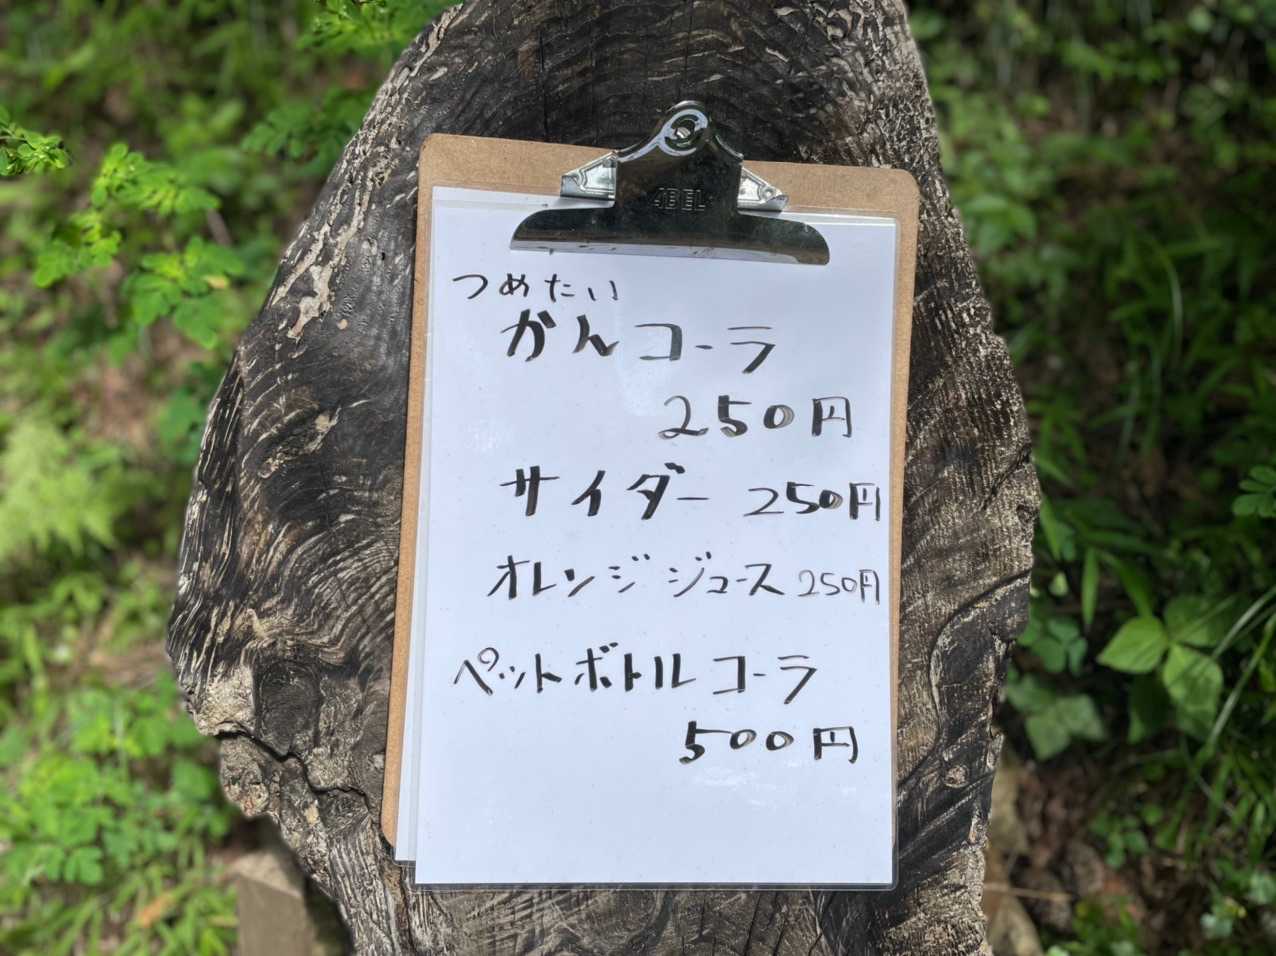 ABEL
つめたい
かんコーラ
250円
サイダー 250円
オレンジジュース 250円
ペットボトルコーラ
500円